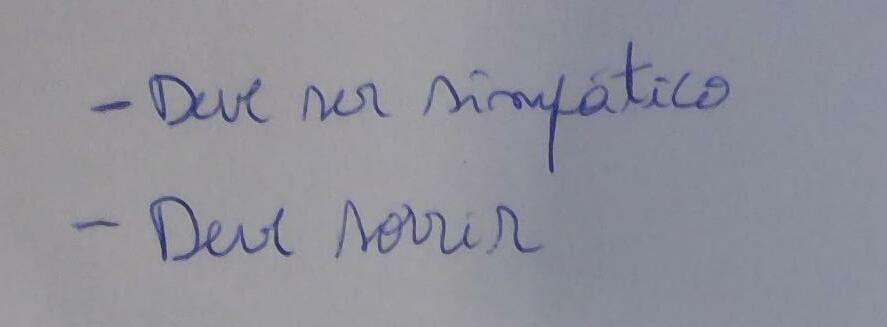 - Deve ser simpático
- Deve sorrir